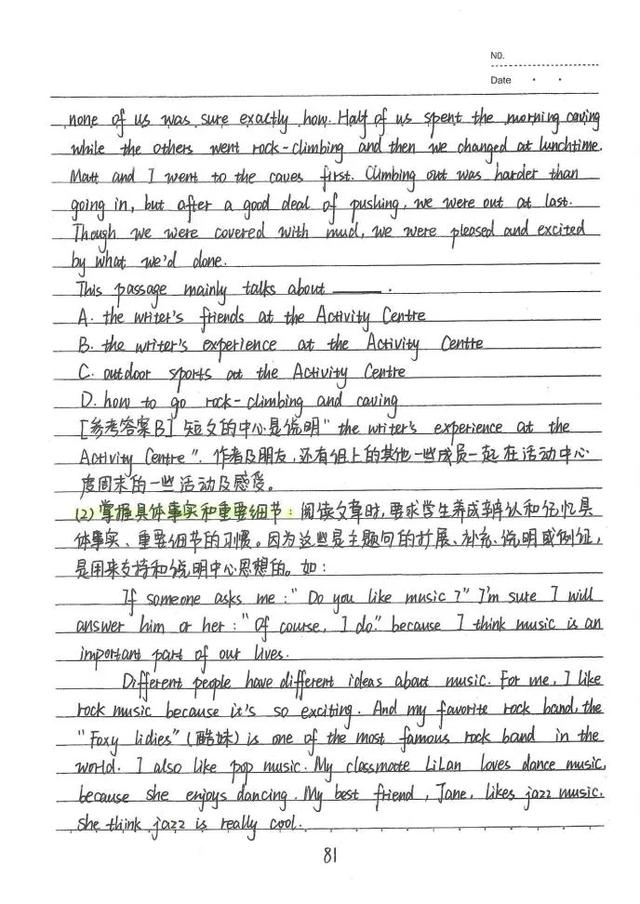 NO.
Date
none of us was sure exactly how. Half of us spent the morning caving
while the others went rock-climbing and then we changed at lunchtime.
Matt and I went to the caves first. Climbing out was harder than
going in, but after a good deal of pushing, we were out at last.
Though we were covered with mud, we were pleased and excited
by what we'd done.
This passage mainly talks about ______.
A. the writer's friends at the Activity Centre
B. the writer's experience at the Activity Centre
C. outdoor sports at the Activity Centre
D. how to go rock-climbing and caving
[参考答案B] 短文的中心是说明"the writer's experience at the
Activity Centre", 作者及朋友,还有组上的其他一些成员一起在活动中心
度周末的一些活动及感受。
(2)掌握具体事实和重要细节:阅读文章时,要求学生养成辨认和记忆具
体事实、重要细节的习惯。因为这些是主题句的扩展、补充、说明或例证,
是用来支持和说明中心思想的。如:
If someone asks me:"Do you like music?" I'm sure I will
answer him or her:"Of course, I do." because I think music is an
important part of our lives.
Different people have different ideas about music. For me, I like
rock music because it's so exciting. And my favorite rock band, the
"Foxy lidies"(酷妹) is one of the most famous rock band in the
world. I also like pop music. My classmate LiLan loves dance music,
because she enjoys dancing. My best friend, Jane, likes jazz music.
she think jazz is really cool.
81